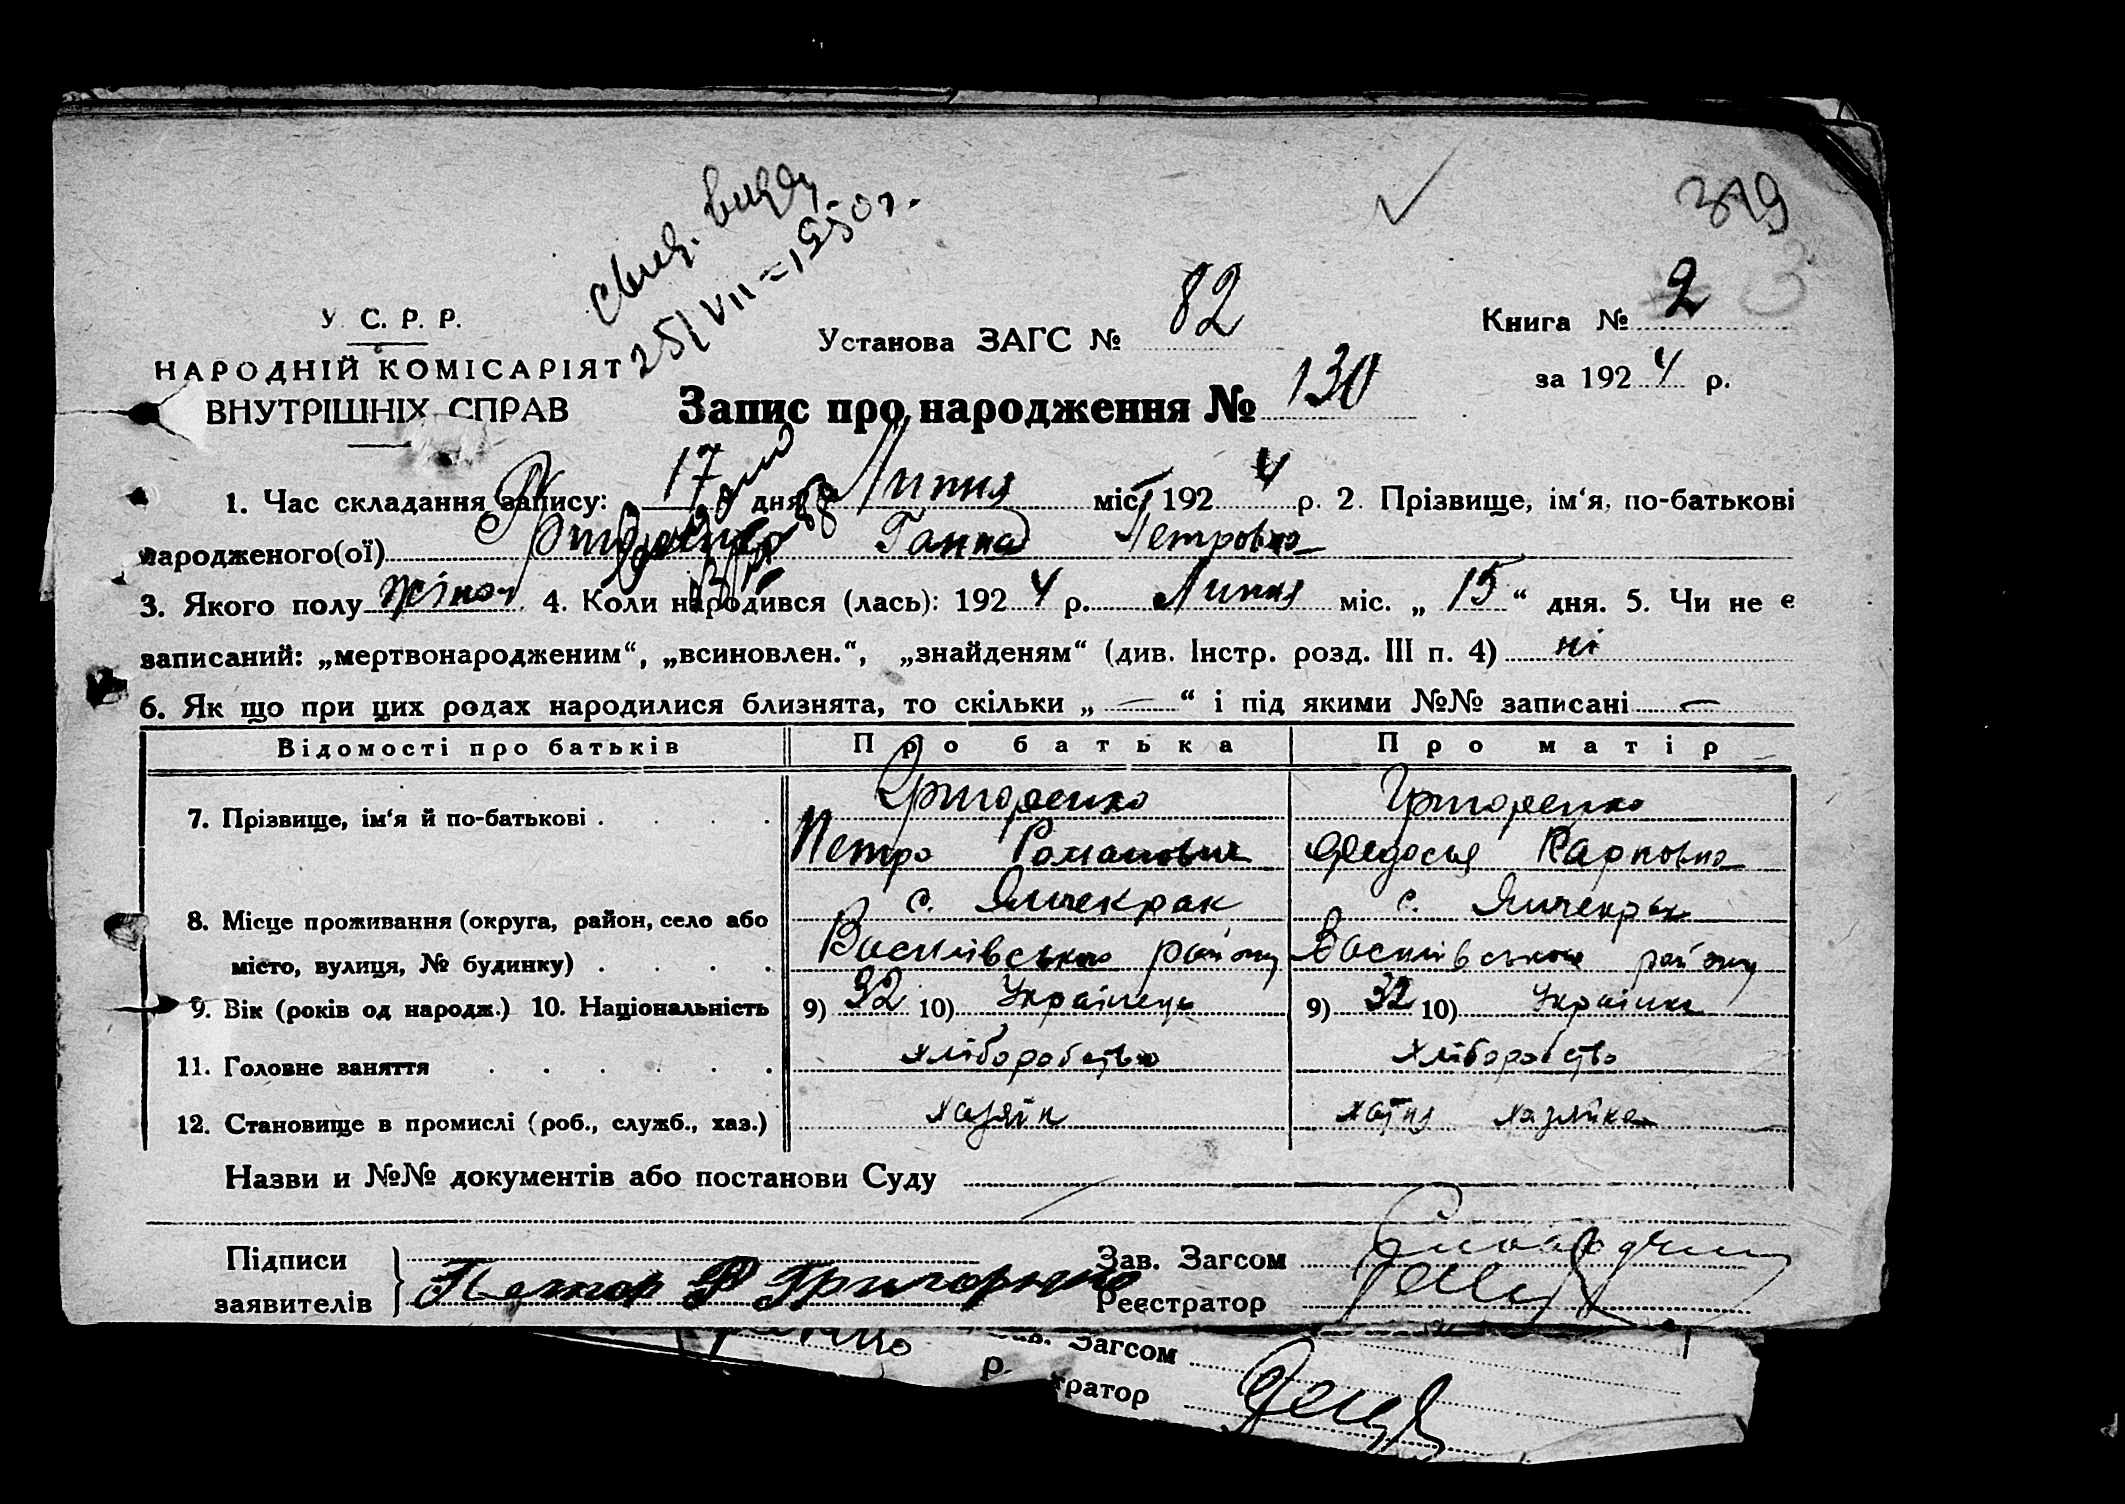 свид. выд.
25/VII-1950 г.
319
3
У. С. Р. Р.
НАРОДНІЙ КОМІСАРІЯТ
ВНУТРІШНІХ СПРАВ
Установа ЗАГС № 82
Книга № 2
за 1924 р.
Запис про народження № 130
1. Час складання запису: 17 дня Липня міс. 1924 р. 2. Прізвище, ім‘я, по-батькові
народженого(ої) Григоренко Ганна Петровна
3. Якого полу жіноч 4. Коли народився (лась): 1924 р. Липня міс. „ 15 “ дня. 5. Чи не є
записаний: „мертвонародженим“, „всиновлен.“, „знайденям“ (див. Інстр. розд. III п. 4) ні
6. Як що при цих родах народилися близнята, то скільки „ — “ і під якими №№ записані —
Відомості про батьків Про батька Про матір
7. Прізвище, ім‘я й по-батькові . Григоренко Григоренко
Петро Романович Федосья Карповна
8. Місце проживання (округа, район, село або с. Янчекрак с. Янчекрак
місто, вулиця, № будинку) Василівського району Василівського району
9. Вік (років од народж.) 10. Національність 9) 32 10) Українець 9) 32 10) Українка
11. Головне заняття хліборобство хліборобство
12. Становище в промислі (роб., служб., хаз.) хазяїн хатня хазяйка
Назви и №№ документів або постанови Суду
Підписи
заявителів Петро Р Григоренко
Зав. Загсом
Реєстратор
Загсом
р.
тратор